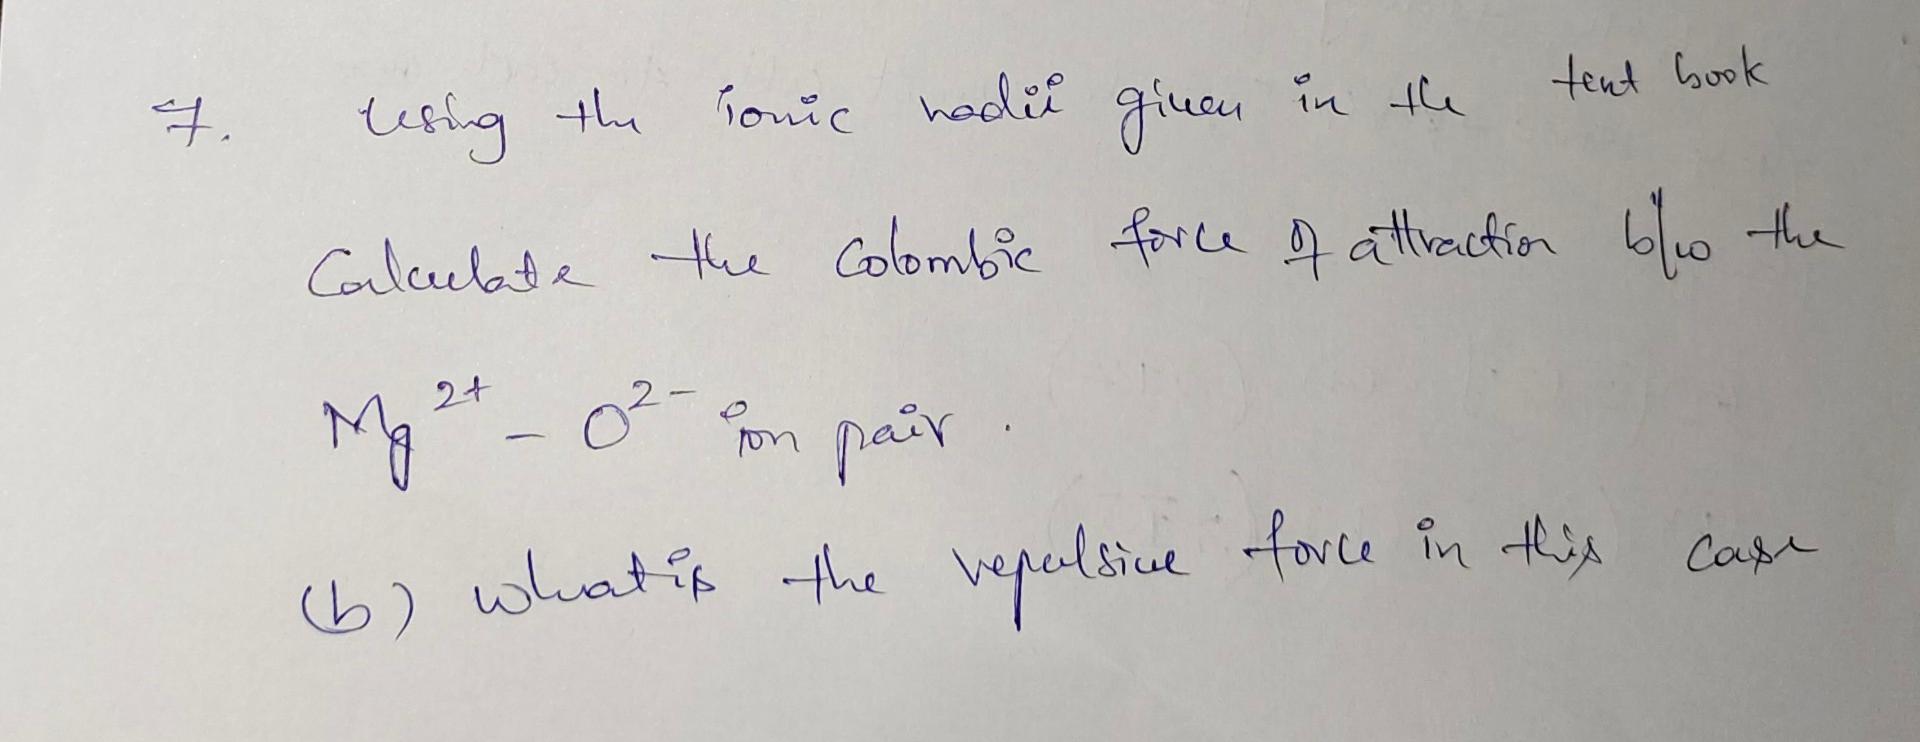 7. Using the ionic radii given in the text book
Calculate the Colombic force of attraction b/w the
Mg2+ - O2- ion pair.
(b) What is the repulsive force in this case